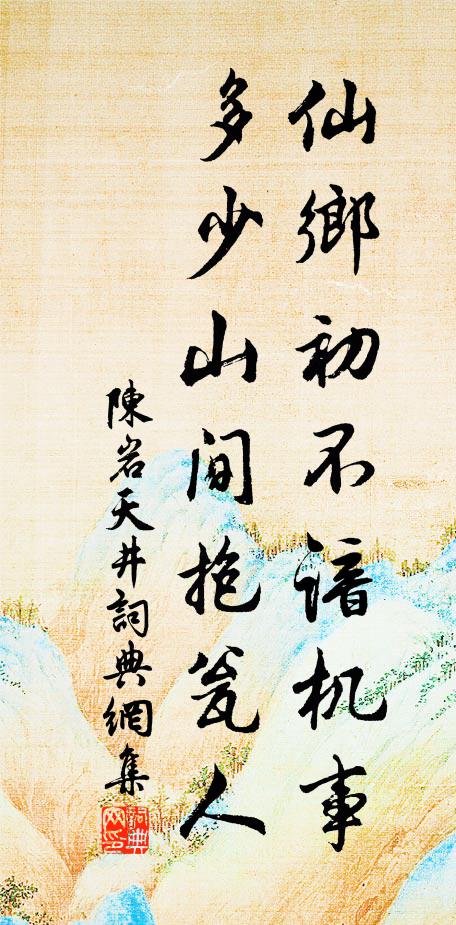 仙鄉初不諳机事
多少山間抱瓮人
陳岩天井詞典網集
詞典
网印